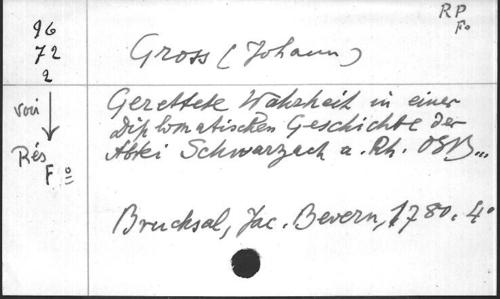 RP
F°
96
72
2
Gross (Johann)
voir
Rés
F°
Gerettete Wahrheit in einer
diplomatischen Geschichte der
Abtei Schwarzach a. Rh. OSB...
Bruchsal, Jac. Bevern, 1780. 4°